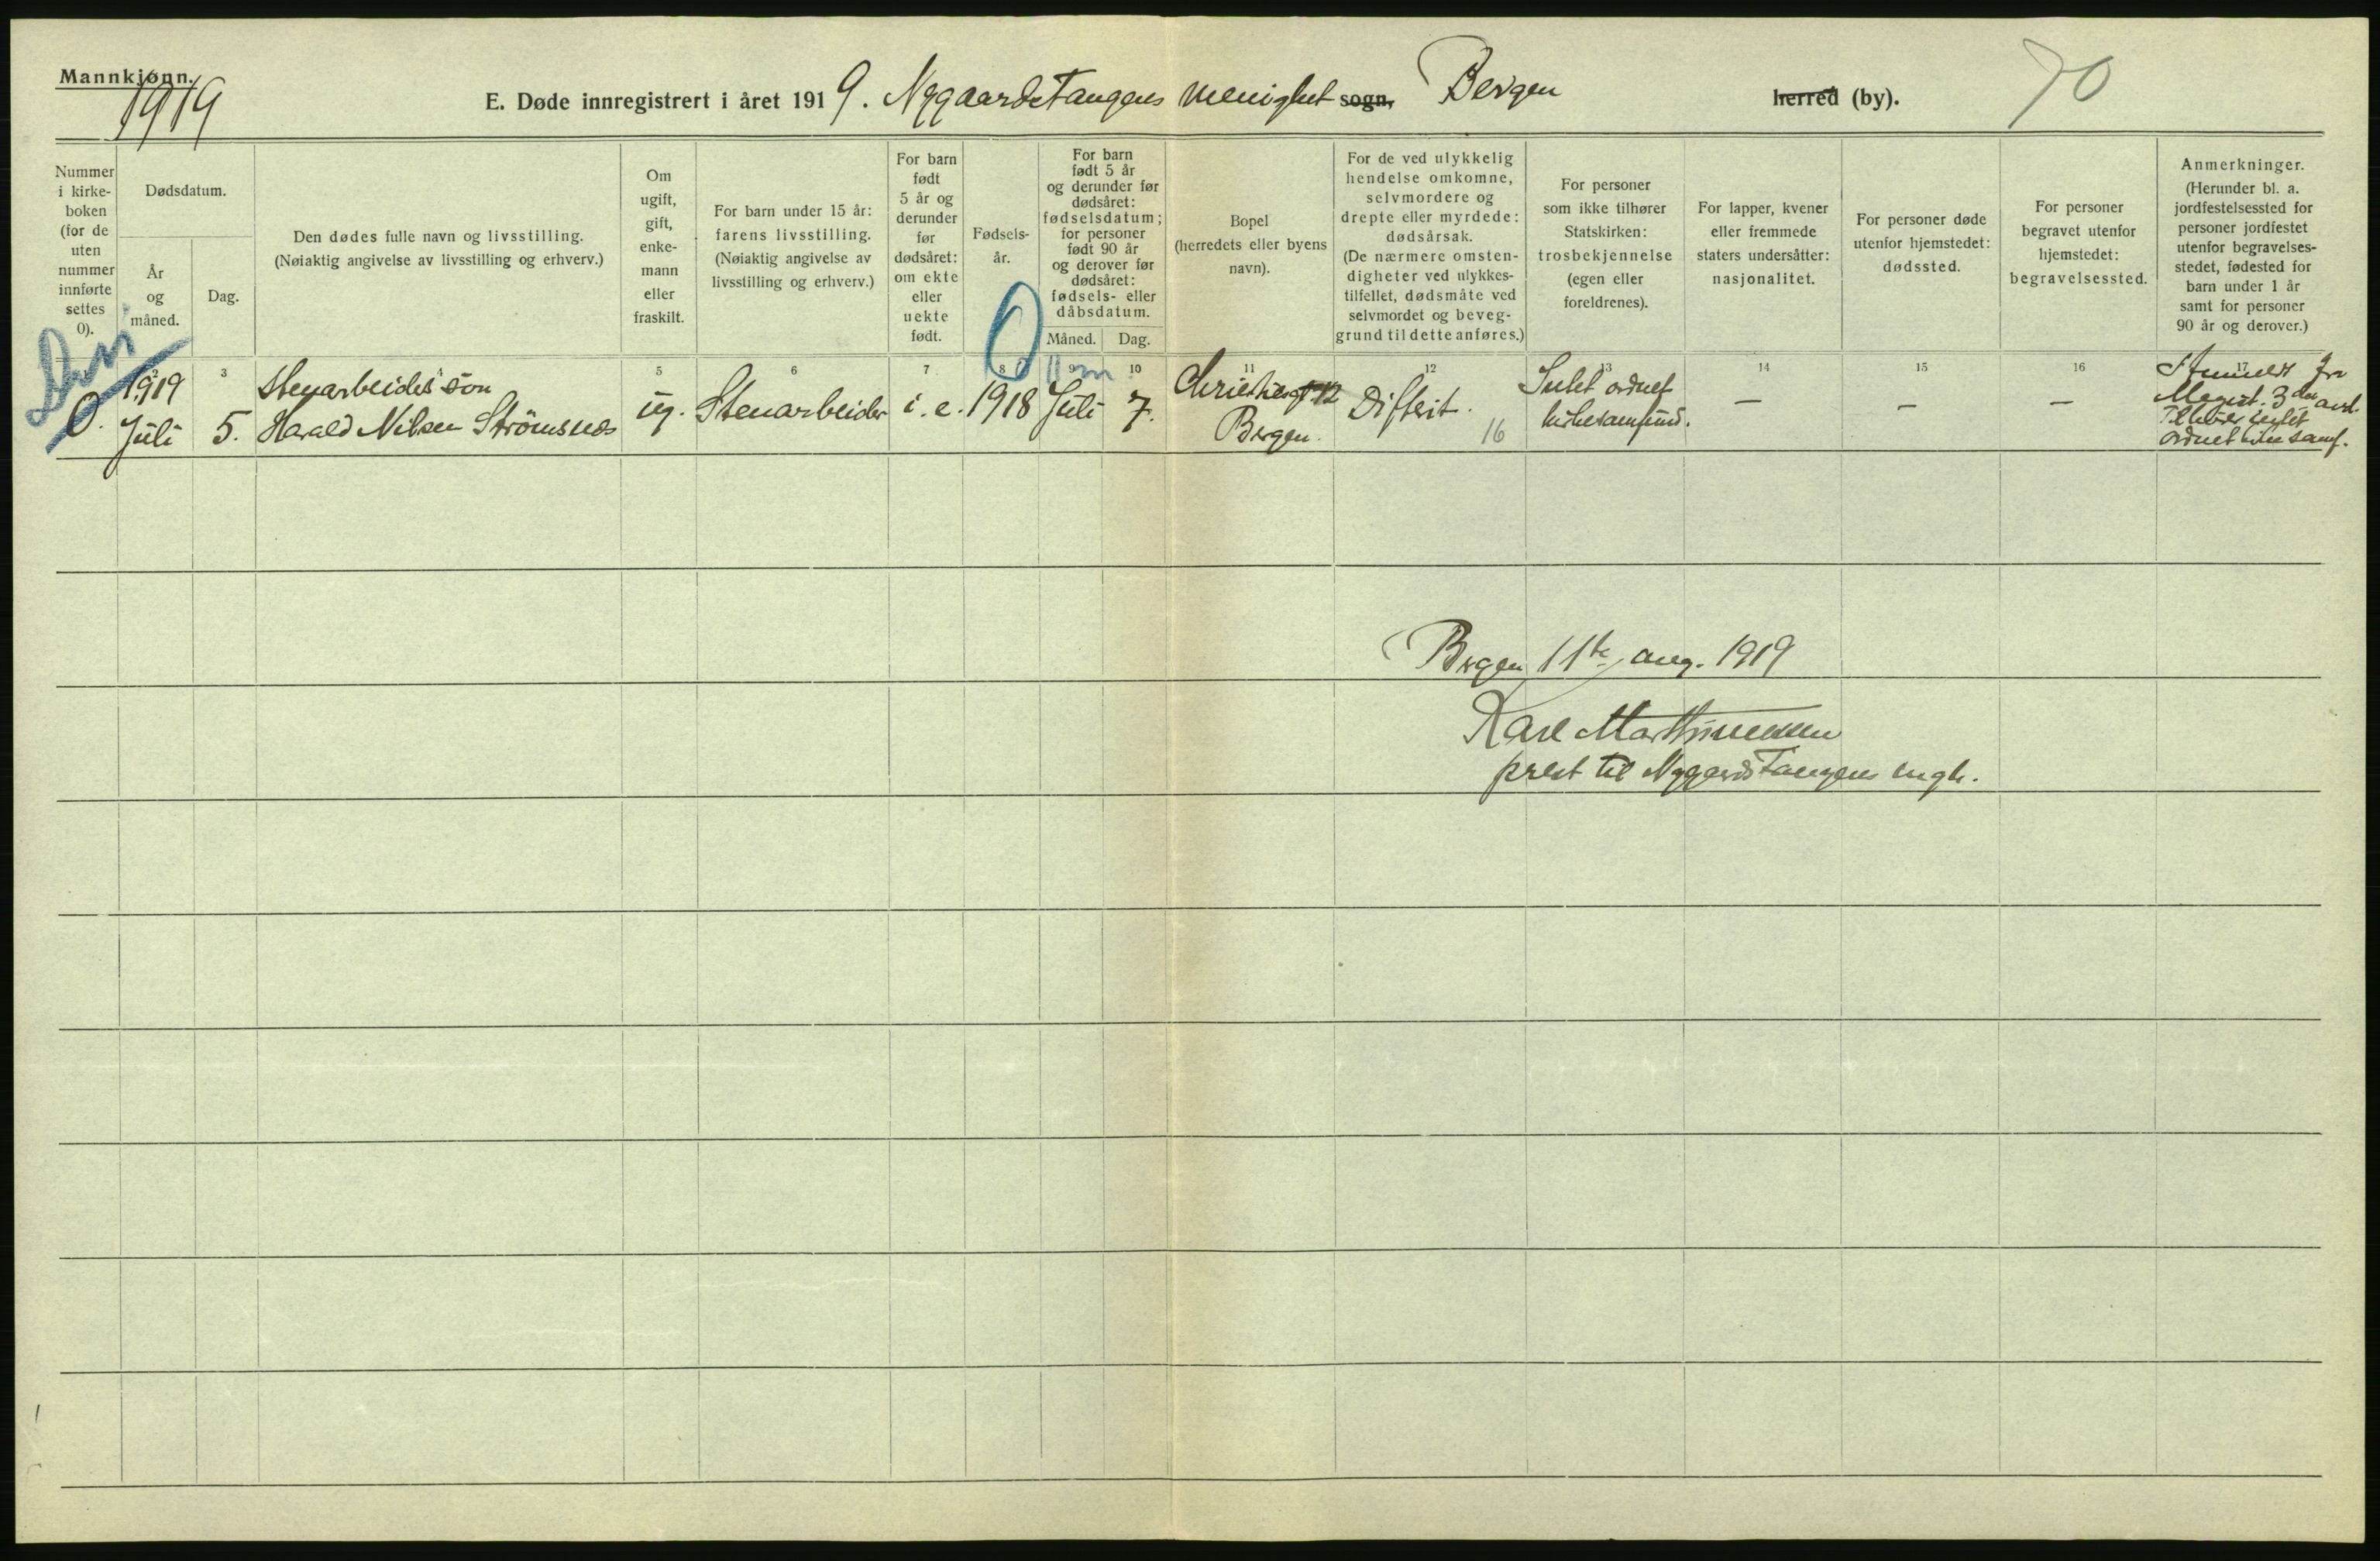 Mannkjønn.
1919
E. Døde innregistrert i året 1919. NygaardsTangens menighet sogn, Bergen herred (by).
70
Nummer i kirke- boken (for de uten nummer innførte settes 0).
Dødsdatum.
År og måned.
Dag.
Den dødes fulle navn og livsstilling.
(Nøiaktig angivelse av livsstilling og erhverv.)
Om ugift, gift, enke- mann eller fraskilt.
For barn under 15 år: farens livsstilling. (Nøiaktig angivelse av livsstilling og erhverv.)
For barn født 5 år og derunder før dødsåret: om ekte eller uekte født.
Fødsels- år.
For barn født 5 år og derunder før dødsåret: fødselsdatum; for personer født 90 år og derover før dødsåret: fødsels- eller dåbsdatum.
Måned.
Dag.
Bopel (herredets eller byens navn).
For de ved ulykkelig hendelse omkomne, selvmordere og drepte eller myrdede: dødsårsak. (De nærmere omsten- digheter ved ulykkes- tilfellet, dødsmåte ved selvmordet og beveg- grund til dette anføres.)
For personer som ikke tilhører Statskirken: trosbekjennelse (egen eller foreldrenes).
For lapper, kvener eller fremmede staters undersåtter: nasjonalitet.
For personer døde utenfor hjemstedet: dødssted.
For personer begravet utenfor hjemstedet: begravelsessted.
Anmerkninger. (Herunder bl. a. jordfestelsessted for personer jordfestet utenfor begravelses- stedet, fødested for barn under 1 år samt for personer 90 år og derover.)
3 5 6 7 8 9 10 11 12 13 14 15 16 17
0
11 m
0. 1919 Juli 5. Stenarbeiders søn Harald Nilsen Strömsnes ug. Stenarbeider i. e. 1918 Juli 7. Christiesgt 12 Bergen. Difterit. 16 Intet ordnet kirkesamfund. — — —
Magist. 3die avd.
Tilhører intet
ordnet kirkesamf.
Bergen 11te aug. 1919
Karl Marthinussen
prest til NygaardsTangens mgh.